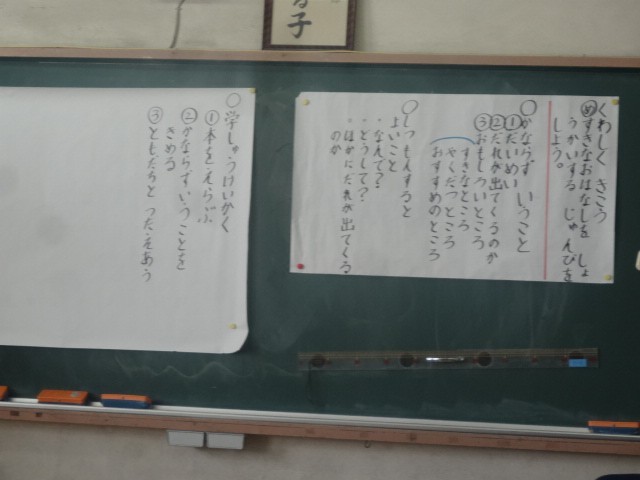 る子
くわしく きこう
めすきなおはなしを しょ
うかいする じゅんびを
しよう。
○かならず いうこと
①だいめい
②だれが出てくるのか
③おもしろいところ
すきなところ
やくだつところ
おすすめのところ
○しつもんすると
よいこと
・なんで?
・どうして?
・ほかにだれが出てくる
のか
○学しゅうけいかく
①本をえらぶ
②かならずいうことを
きめる
③ともだちと つたえあう